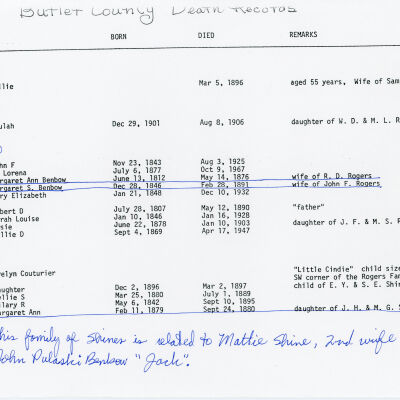 Butler County Death Records
BORN DIED REMARKS
llie Mar 5, 1896 aged 55 years, Wife of Sam
ulah Dec 29, 1901 Aug 8, 1906 daughter of W. D. & M. L. R
hn F Nov 23, 1843 Aug 3, 1925
Lorena July 6, 1877 Oct 9, 1967
rgaret Ann Benbow June 13, 1812 May 14, 1876 wife of R. D. Rogers
rgaret S. Benbow Dec 28, 1846 Feb 28, 1891 wife of John F. Rogers
ry Elizabeth Jan 21, 1848 Dec 10, 1932
bert D July 28, 1807 May 12, 1890 "father"
rah Louise Jan 10, 1846 Jan 16, 1928
sie June 22, 1878 Jan 10, 1903 daughter of J. F. & M. S. R
llie D Sept 4, 1869 Apr 17, 1947
"Little Cindie" child size
elyn Couturier SW corner of the Rogers Fam
ughter Dec 2, 1896 Mar 2, 1897 child of E. Y. & S. E. Shin
llie S Mar 25, 1880 July 1, 1889
lary R May 6, 1842 Sept 10, 1895
rgaret Ann Feb 11, 1879 Sept 24, 1880 daughter of J. H. & M. G. S
his family of Shines is related to Mattie Shine, 2nd wife
John Pulaski Benbow "Jack".